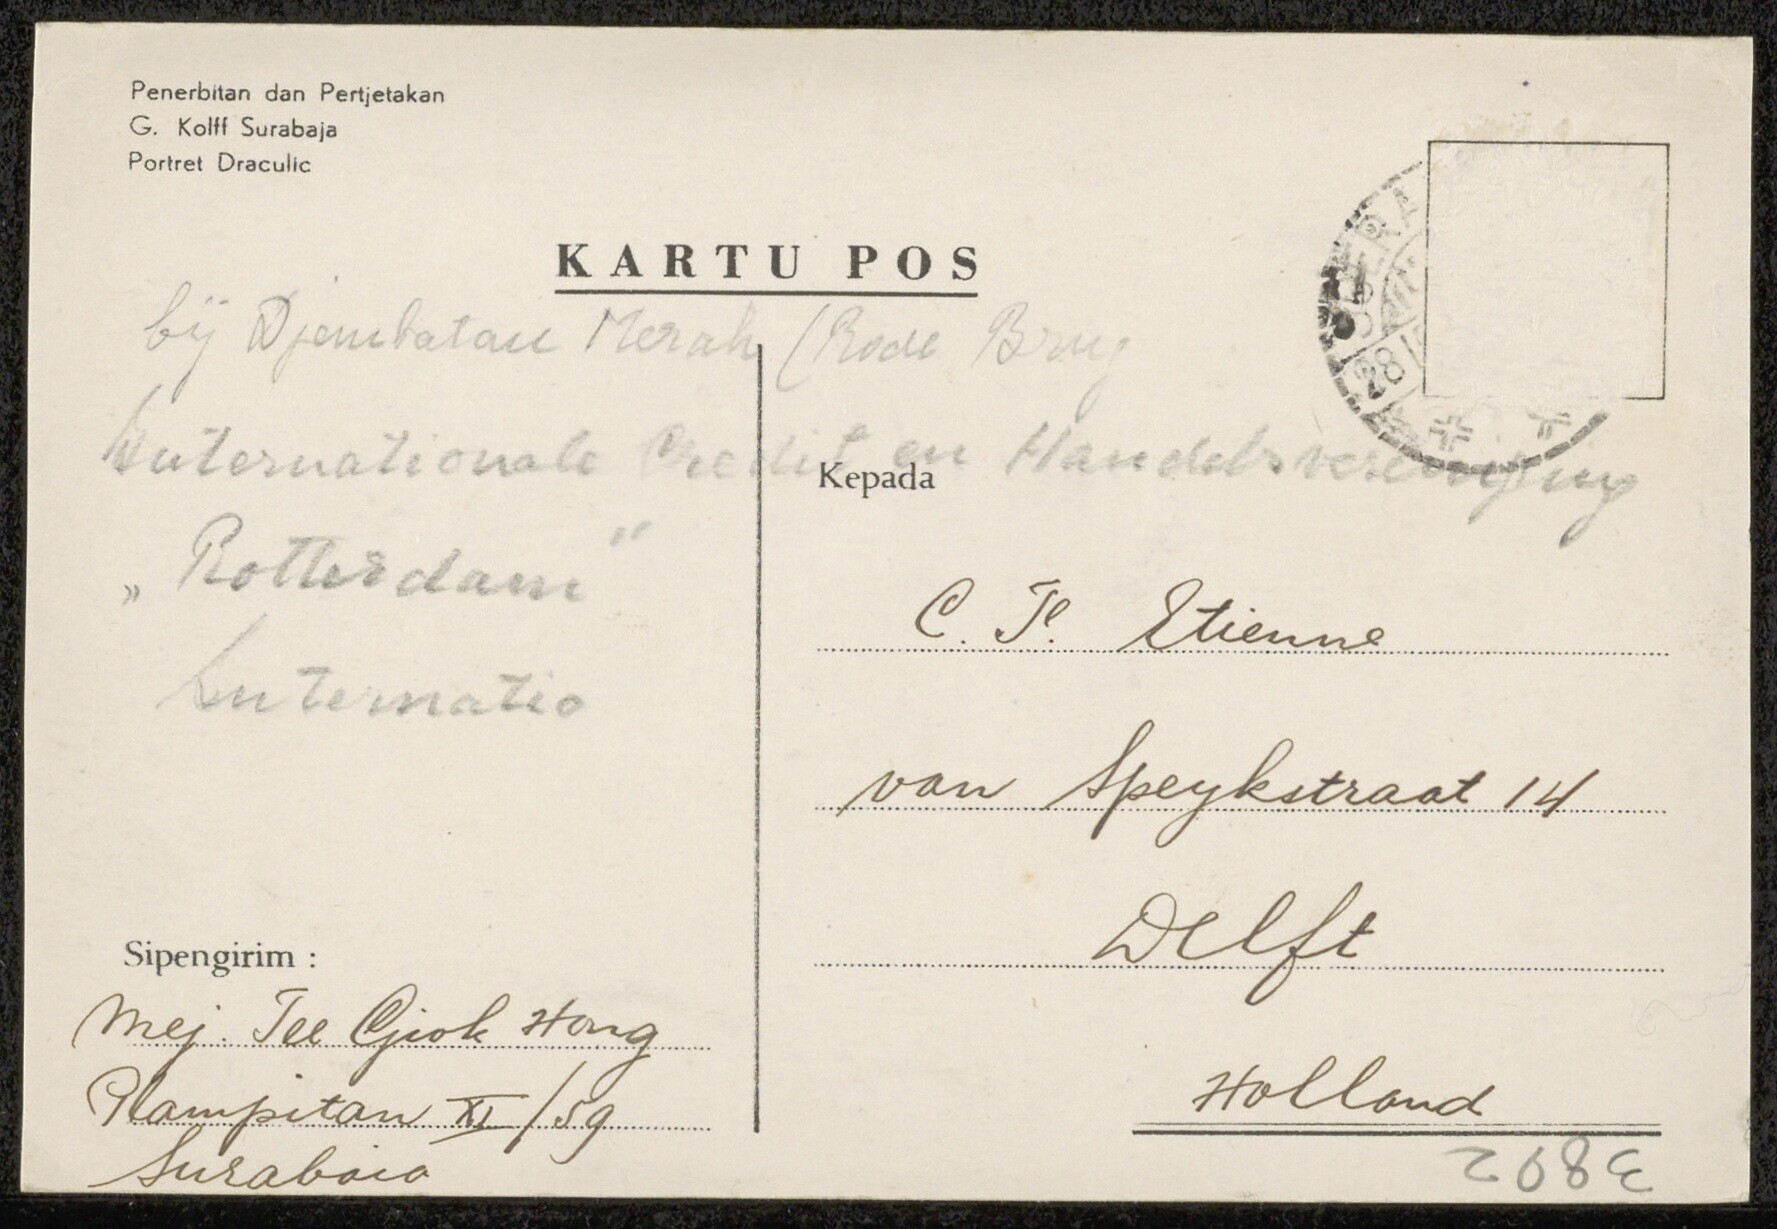 Penerbitan dan Pertjetakan
G. Kolff Surabaja
Portret Draculic
KARTU POS
bij Djembatan Merah (Rode Brug
Internationale Credit en Handelsvereniging
„ Rotterdam "
Internatio
Kepada
C. Etienne
van Speykstraat 14
Delft
Holland
Sipengirim :
Mej. Tee Giok Hong
Plampitan XI/59
Surabaia
28